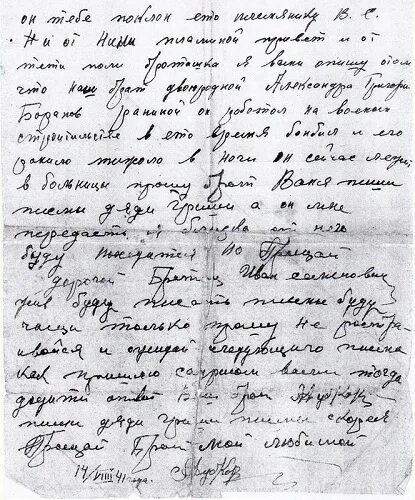 он тебе поклон ето племянику В. С.
Н и от Нины пламиной привет и от
тети поли братошка я вам опишу отом
что наш брат двоюродной Александра Григори
Баранов раниной он роботол на военом
строительстве в ето время бонбил и его
ранило тижоло в ноги он сейчас лежит
в больницы прошу брат Ваня пиши
письмы дяди Гриши а он мне
передаст я близка от него
буду находится Но Прощай
дорогой Братиц Иван
буду писать письмы буду
чащи только прошу не
ивайся и ожидай следующиго писма
как пришлю всем тогда
дадити ответ Ваш Брат
пиши дяди Гриши письмы скорея
Прощай Брат мой любимой
14/VIII 41 года.